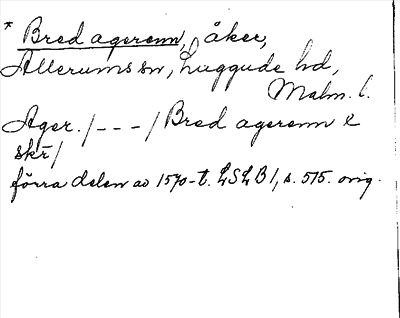 * Bred agerenn, åker,
Allerums sn, Luggude hd,
Malm. l.
Ager. / - - - / Bred agerenn 2
skr /
förra delen av 1570-t. LSLB 1, s. 515. orig.